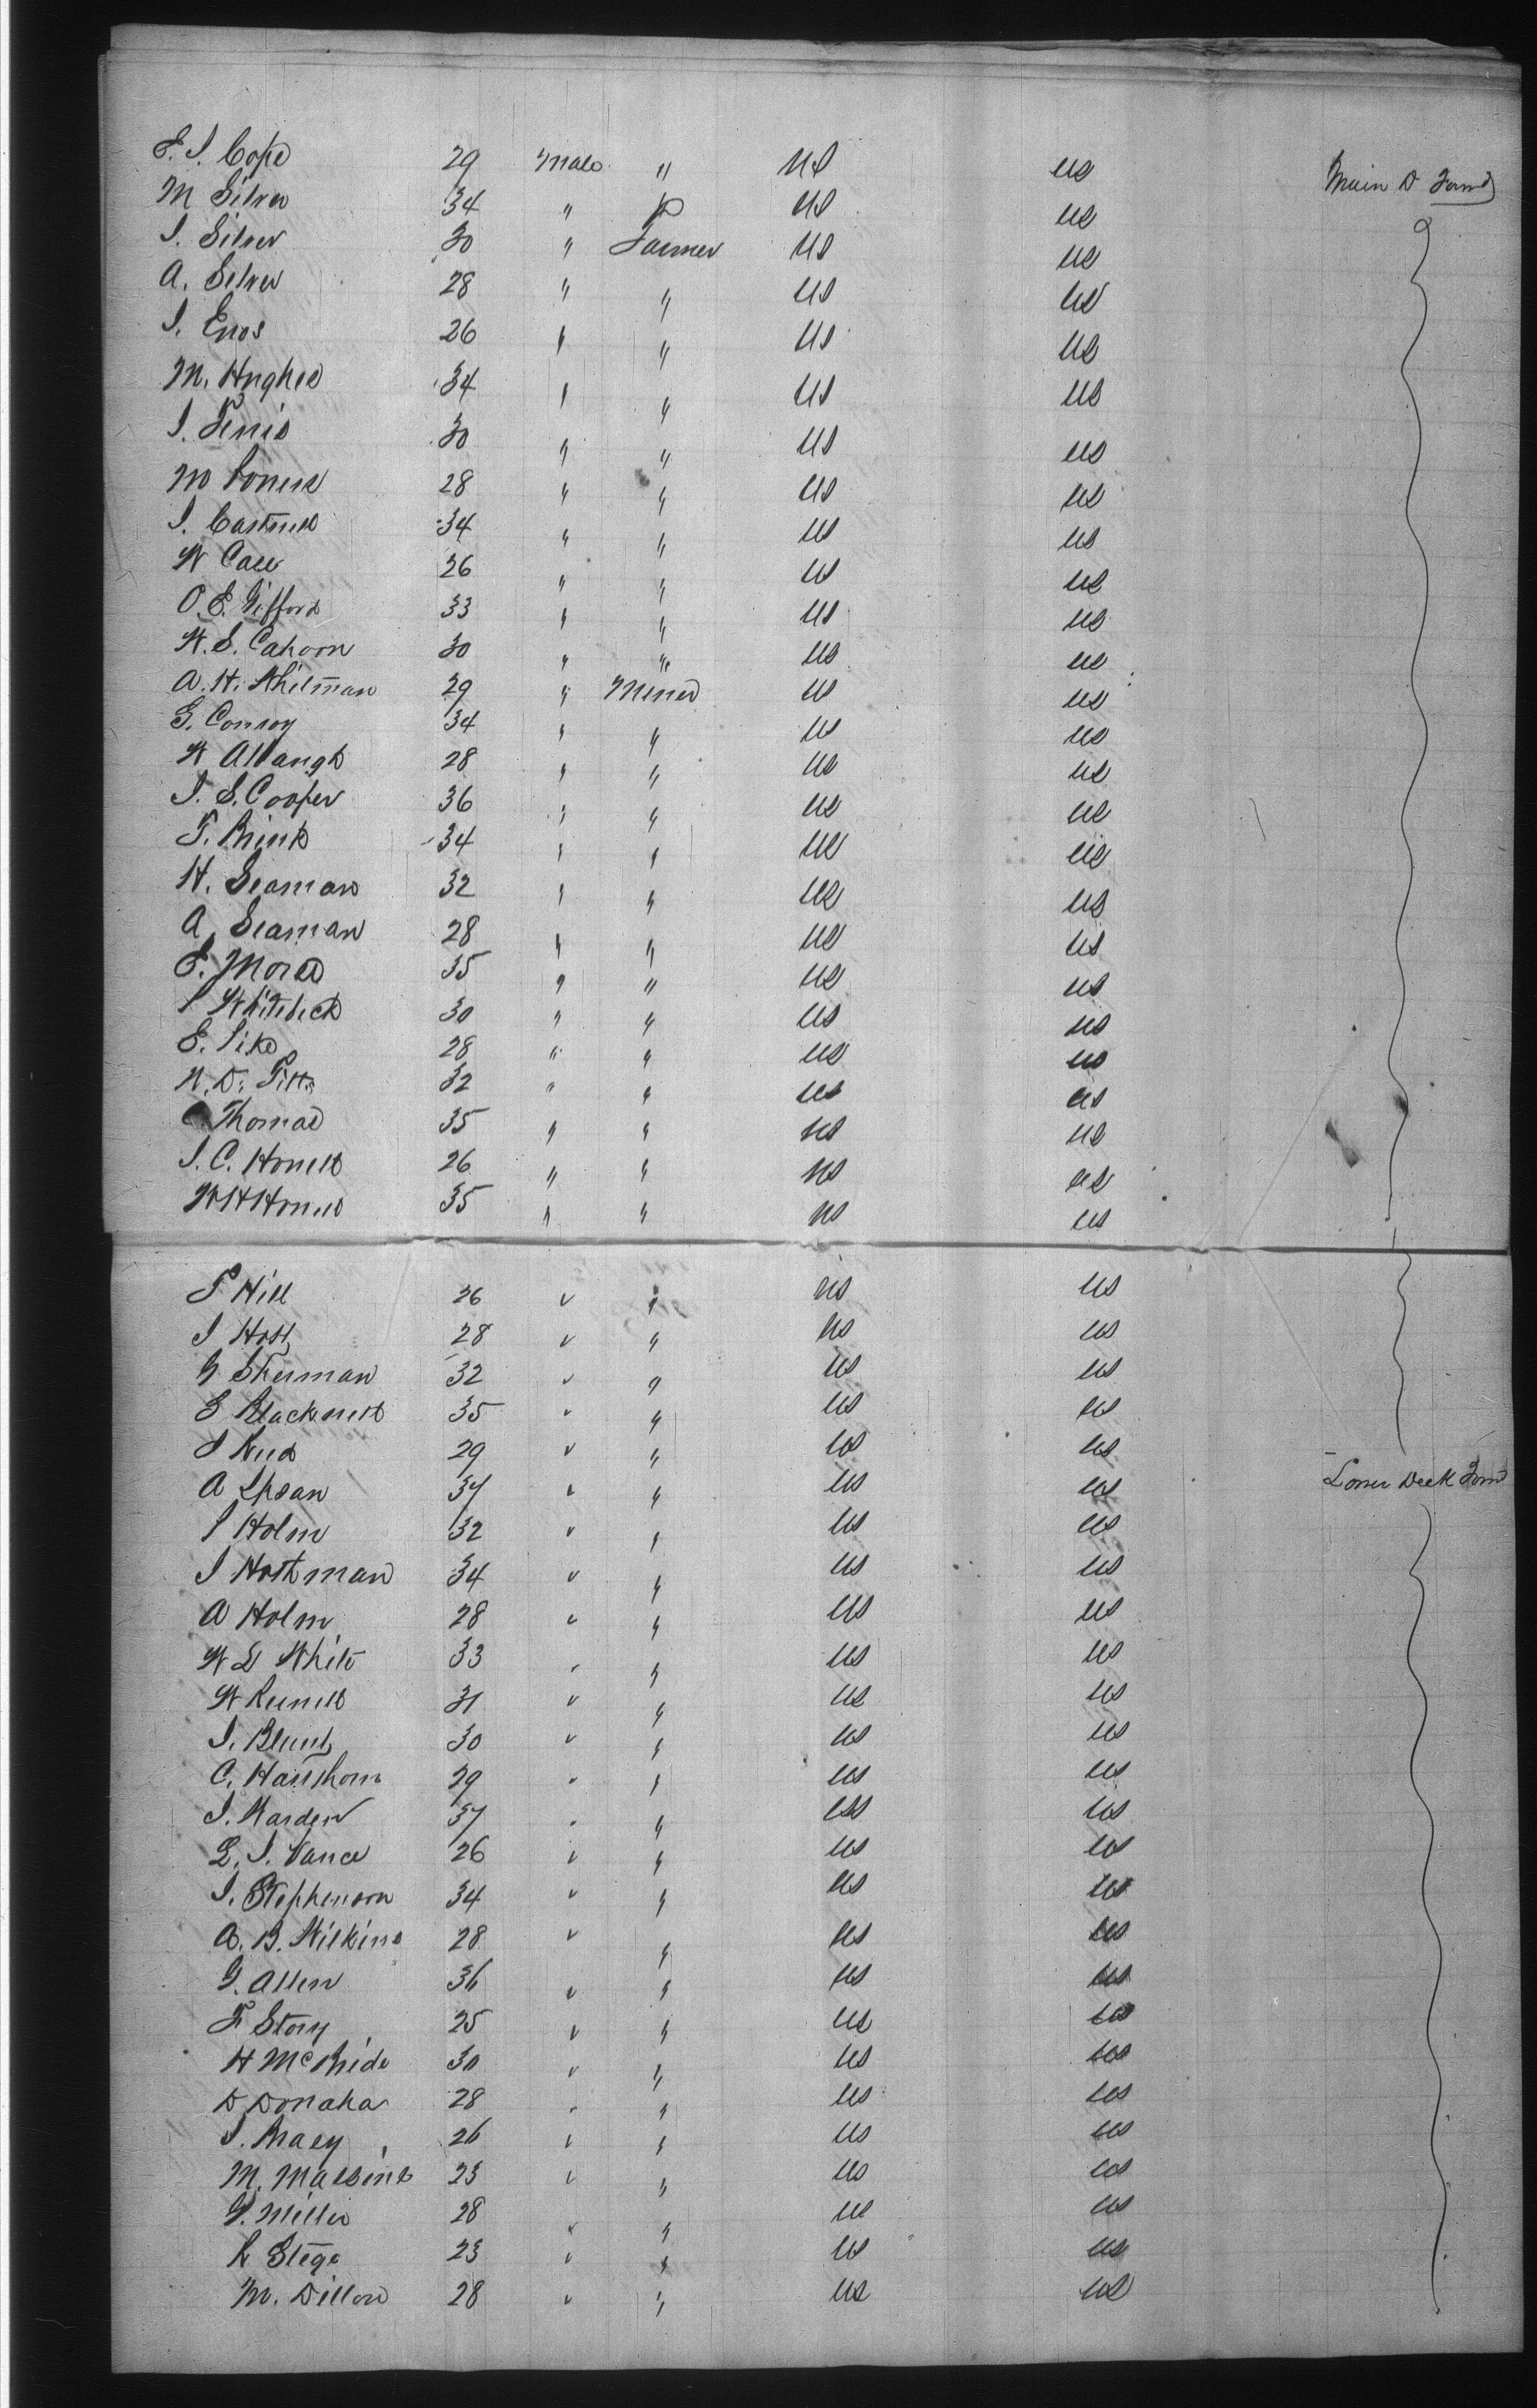 E. J. Cope 29 Male " US US Main D Forwd
M Silver 34 " " US US
J. Silver 30 " Farmer US US
A. Silver 28 " " US US
J. Enos 26 " " US US
M. Hughes 34 " " US US
J. 30 " " US US
M 28 " " US US
J. 34 " " US US
W 26 " " US US
O. E. Gifford 33 " " US US
W. S. Cahoon 30 " " US US
A. H. Whitman 29 " Miner US US
G. Conroy 34 " " US US
W 28 " " US US
J. S. Cooper 36 " " US US
F. Brink 34 " " US US
H. Seaman 32 " " US US
A. Seaman 28 " " US US
E. 35 " " US US
Whitbeck 30 " " US US
E. Pike 28 " " US US
N. D. Pitts 32 " " US US
Thomas 35 " " US US
J. C. Howell 26 " " US US
W H Howell 35 " " US US
Hill 26 " " US US
J Hott 28 " " US US
G Sherman 32 " " US US
E Blackwell 35 " " US US
29 " " US US
A 34 " " US US Lower Deck Forwd
Holm 32 " " US US
J Hottman 34 " " US US
A Holm 28 " " US US
W L White 33 " " US US
W 31 " " US US
J. Blunt 30 " " US US
C. Hawthorn 29 " " US US
J. Warden 37 " " US US
L. J. Vance 26 " " US US
J. Stephenson 34 " " US US
A. B. Wilkins 28 " " US US
G. Allen 36 " " US US
F Story 25 " " US US
H McBride 30 " " US US
D Donaha 28 " " US US
J. 26 " " US US
M. 23 " " US US
G. Miller 28 " " US US
Stege 23 " " US US
M. Dillon 28 " " US US